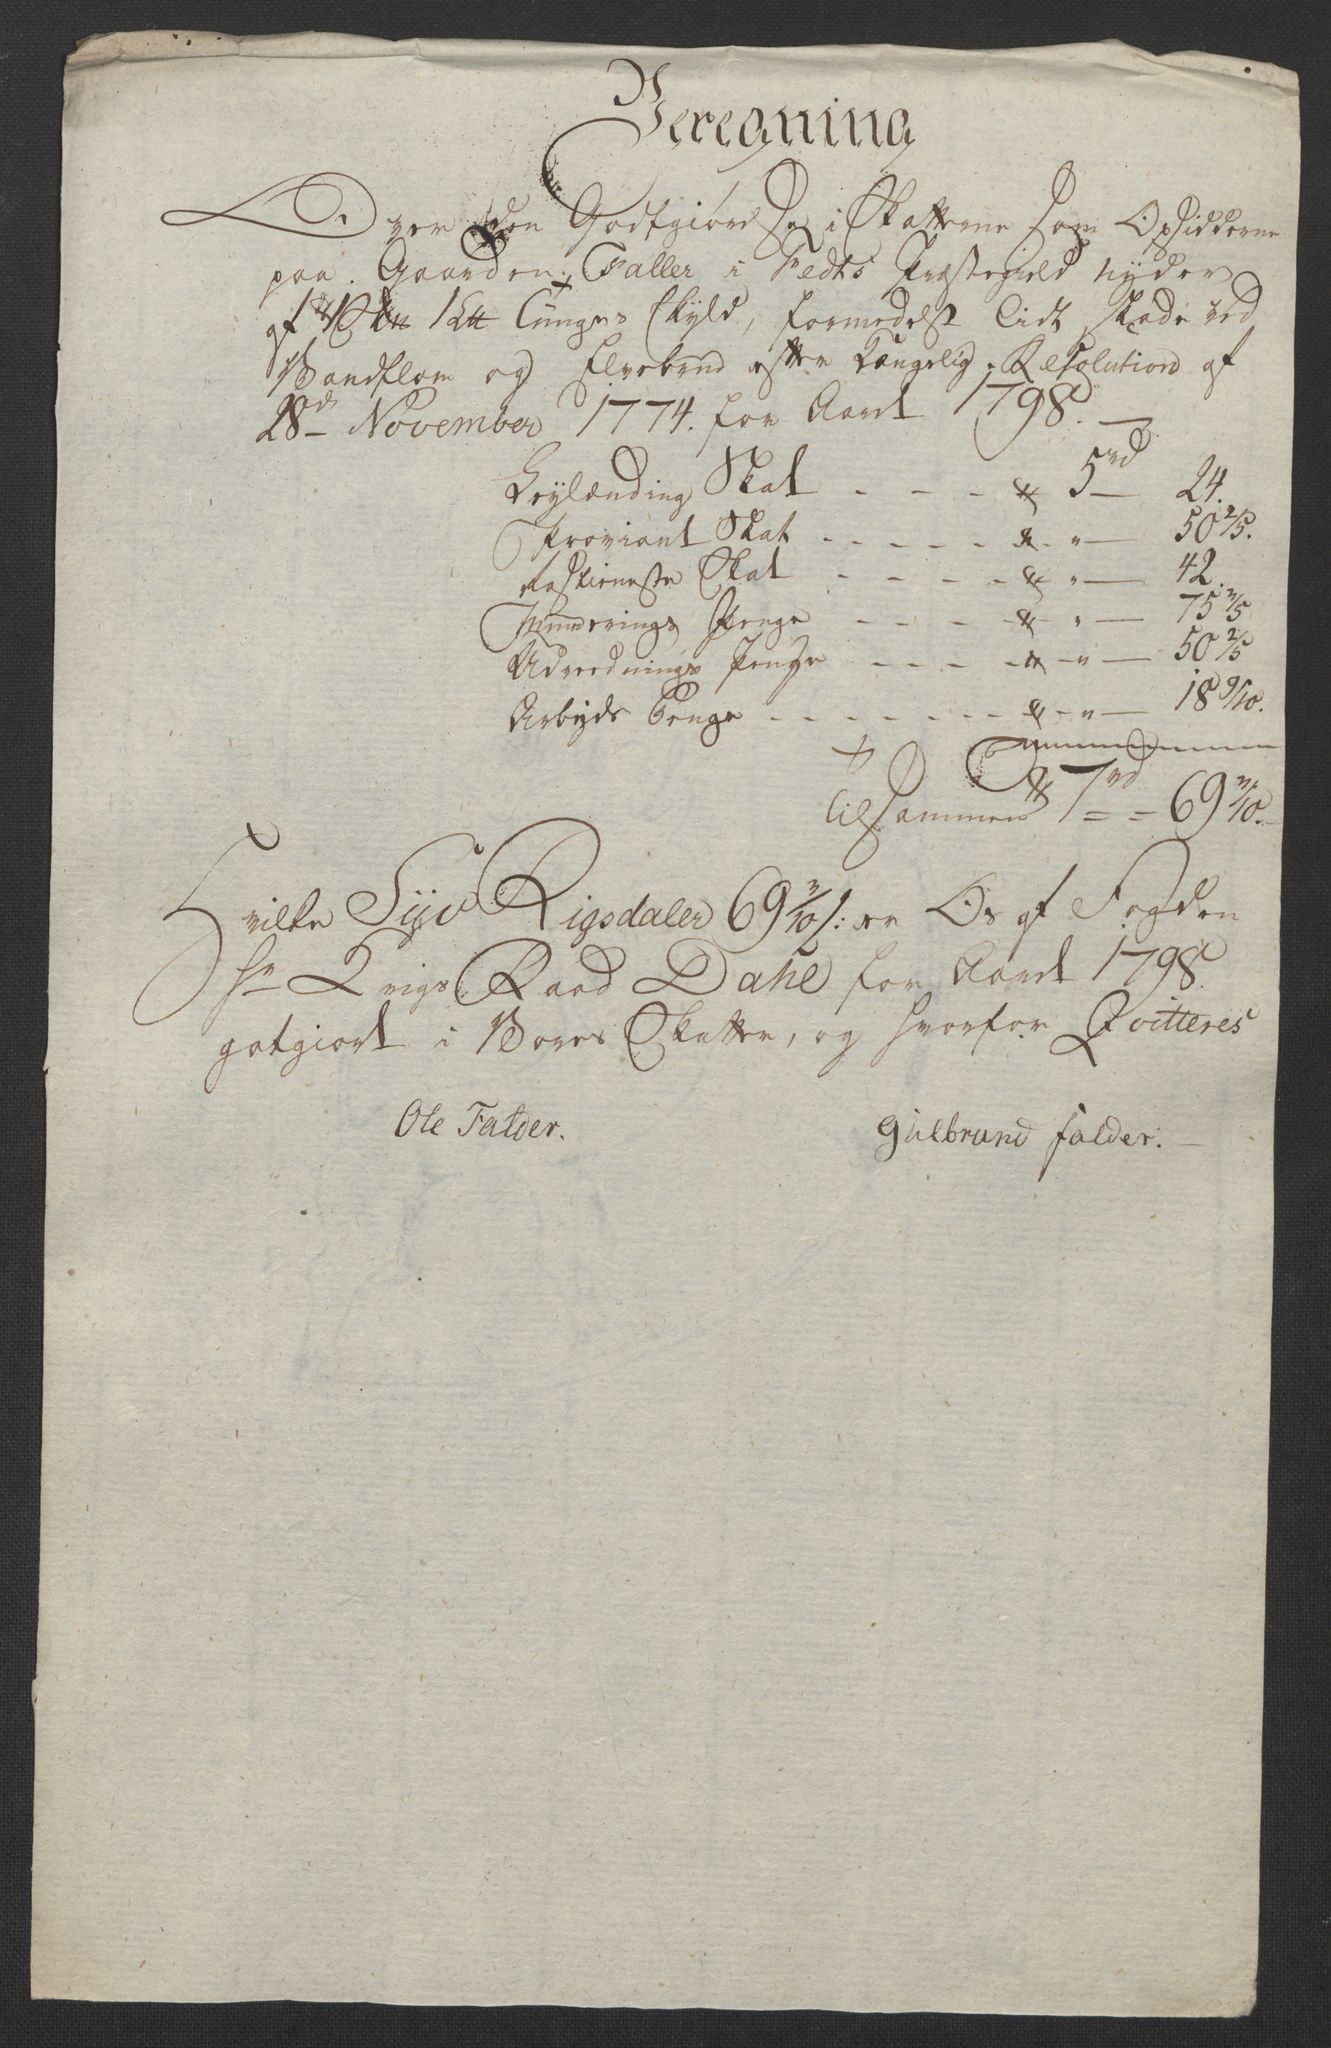 Beregning
Over den Godtgiørelse i Skatterne som Opsidderne
paa Gaarden Faller i Fedts Præstegield nyder
af 1 Sk℔ 1 L℔ Tunges Skyld, formedelst Lidt Skade ved
Vandflom og Elvebrud efter Kongelig Resolution af
28de November 1774. for Aaret 1798.
Leylænding Skat - - - - 5rd 24.
Proviant Skat - - - - - " 50 2/5.
Rostieneste Skat - - - - " 42.
Munderings Penge - - - - " 75 3/5
Udreednings Penge - - - - " 50 2/5
Arbeyds Penge - - - - - - " 18 9/10.
Tilsammen 7rd = = 69 3/10.
Hvilke Syv Rigsdaler 69 3/10 s: er Os af Fogden
Hr Krigs Raad Dahl for Aaret 1798
gotgiort i Vores Skatter, og hvorfor Qvitteres
Ole Falder. Gulbrund Falder.